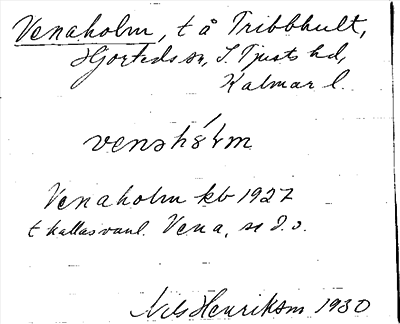 Venaholm, t å Tribbhult,
Hjorteds sn, S. Tjusts hd,
Kalmar l.
venəhʹólm
Venaholm kb 1927
t kallas vanl. Vena, se d.o.
Nils Henriksm 1930